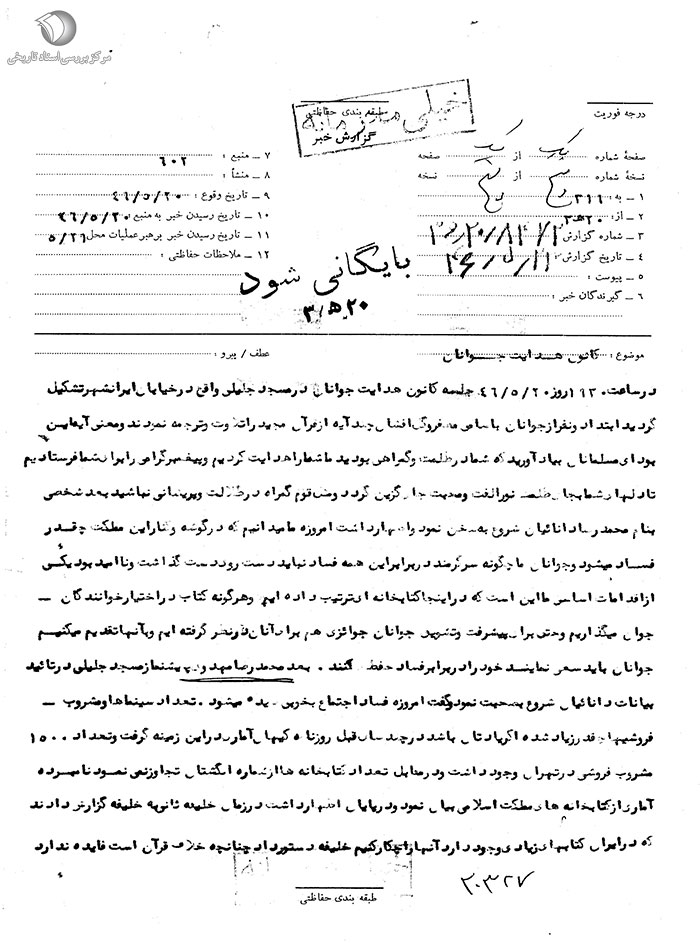 مرکز بررسی اسناد تاریخی
درجه فوریت
طبقه بندی حفاظتی
خیلی محرمانه
گزارش خبر
صفحهٔ شماره یک از یک صفحه
نسخهٔ شماره از نسخه
۱ ـ به : ۳۱۱
۲ ـ از: ۲۰ ﻫ ۳
۳ ـ شماره گزارش
۴ ـ تاریخ گزارش
۵ ـ پیوست :
۶ ـ گیرندگان خبر :
۷ ـ منبع : ۶۰۲
۸ ـ منشأ :
۹ ـ تاریخ وقوع : ۴۶/۵/۲۰
۱۰ ـ تاریخ رسیدن خبر به منبع : ۴۶/۵/۲۰
۱۱ ـ تاریخ رسیدن خبر برهبرعملیات محل ۵/۲۱
۱۲ ـ ملاحظات حفاظتی :
بایگانی شود
۲۰ ﻫ ۳
موضوع : کانون هدایت جوانان
عطف / پیرو :
درساعت ۱۹۳۰ روز ۴۶/۵/۲۰ جلسه کانون هدایت جوانان درمسجد جلیلی واقع درخیابان ایرانشهرتشکیل
گردید ابتدا دونفرازجوانان باسامی فروغی افشار چند آیه ازقرآن مجید راتلاوت وترجمه نمودند ومعنی آیه این
بود ای مسلمانان بیاد آورید که شما درظلمت وگمراهی بودید ماشماراهدایت کردیم وپیغمبرگرامی رابرایشمافرستادیم
تادلهای شمابجای ظلمت نورالفت ومحبت جایگزین گردد ومثل قوم گمراه درظلالت وپریشانی نباشید بعد شخصی
بنام محمدرضا دانائیان شروع به سخن نمود واظهارداشت امروزه مامیدانیم که درگوشه وکناراین مملکت چقدر
فساد میشود وجوانان ماچگونه سرگرمند دربرابراین همه فساد نباید دست روی دست گذاشت وناامید بود یکی
ازاقدامات اساسی مااین است که دراینجا کتابخانه ای ترتیب داده ایم وهرگونه کتاب دراختیارخوانندگان ـ
جوان میگذاریم وحتی برای پیشرفت وتشویق جوانان جوائزی هم برای آنان درنظر گرفته ایم وبآنها تقدیم میکنیم
جوانان باید سعی نمایند خود رادربرابرفساد حفظ کنند . بعد محمدرضا مهدوی پیشنماز مسجد جلیلی درتائید
بیانات دانائیان شروع بصحبت نمود وگفت امروزه فساد اجتماع بخوبی دیده میشود . تعداد سینماها ومشروب ـ
فروشیها چقدر زیاد شده اگریادتان باشد درچند سال قبل روزنامه کیهان آماری دراین زمینه گرفت وتعداد ۱۵۰۰
مشروب فروشی درتهران وجود داشت ودرمقابل تعداد کتابخانه ها ازشماره انگشتان تجاوزنمی نمود نامبرده
آماری ازکتابخانه های مملکت اسلامی بیان نمود ودرپایان اظهارداشت درزمان خلیفه ثانی به خلیفه گزارش دادند
که درایران کتابهای زیادی وجود دارد آنهاراچکارکنیم خلیفه دستورداد چنانچه خلاف قرآن است فایده ندارد
طبقه بندی حفاظتی
۲۰۳۲۷